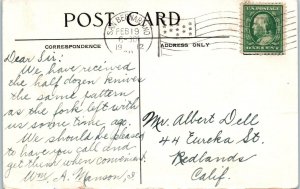 POST CARD
CORRESPONDENCE
ADDRESS ONLY
SAN BERNARDINO
FEB 19
Dear Sir:
We have received
the half dozen knives
the same pattern
as the fork left with
us some time ago.
We should be pleased
to have you call and
get them when convenient.
Wm. A. Manson,
Mr. Albert Dell
44 Eureka St.
Redlands
Calif.